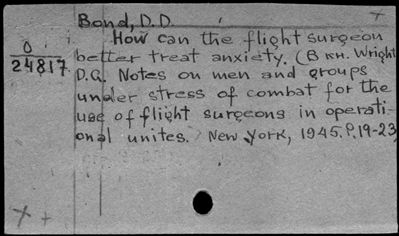 Bond, D.D.
How can the flight surgeon
0
24817
better treat anxiety. (В кн. Wright
D.G. Notes on men and groups
under stress of combat for the
use of flight surgeons in operati-
onal unites. New York, 1945. P.19-23